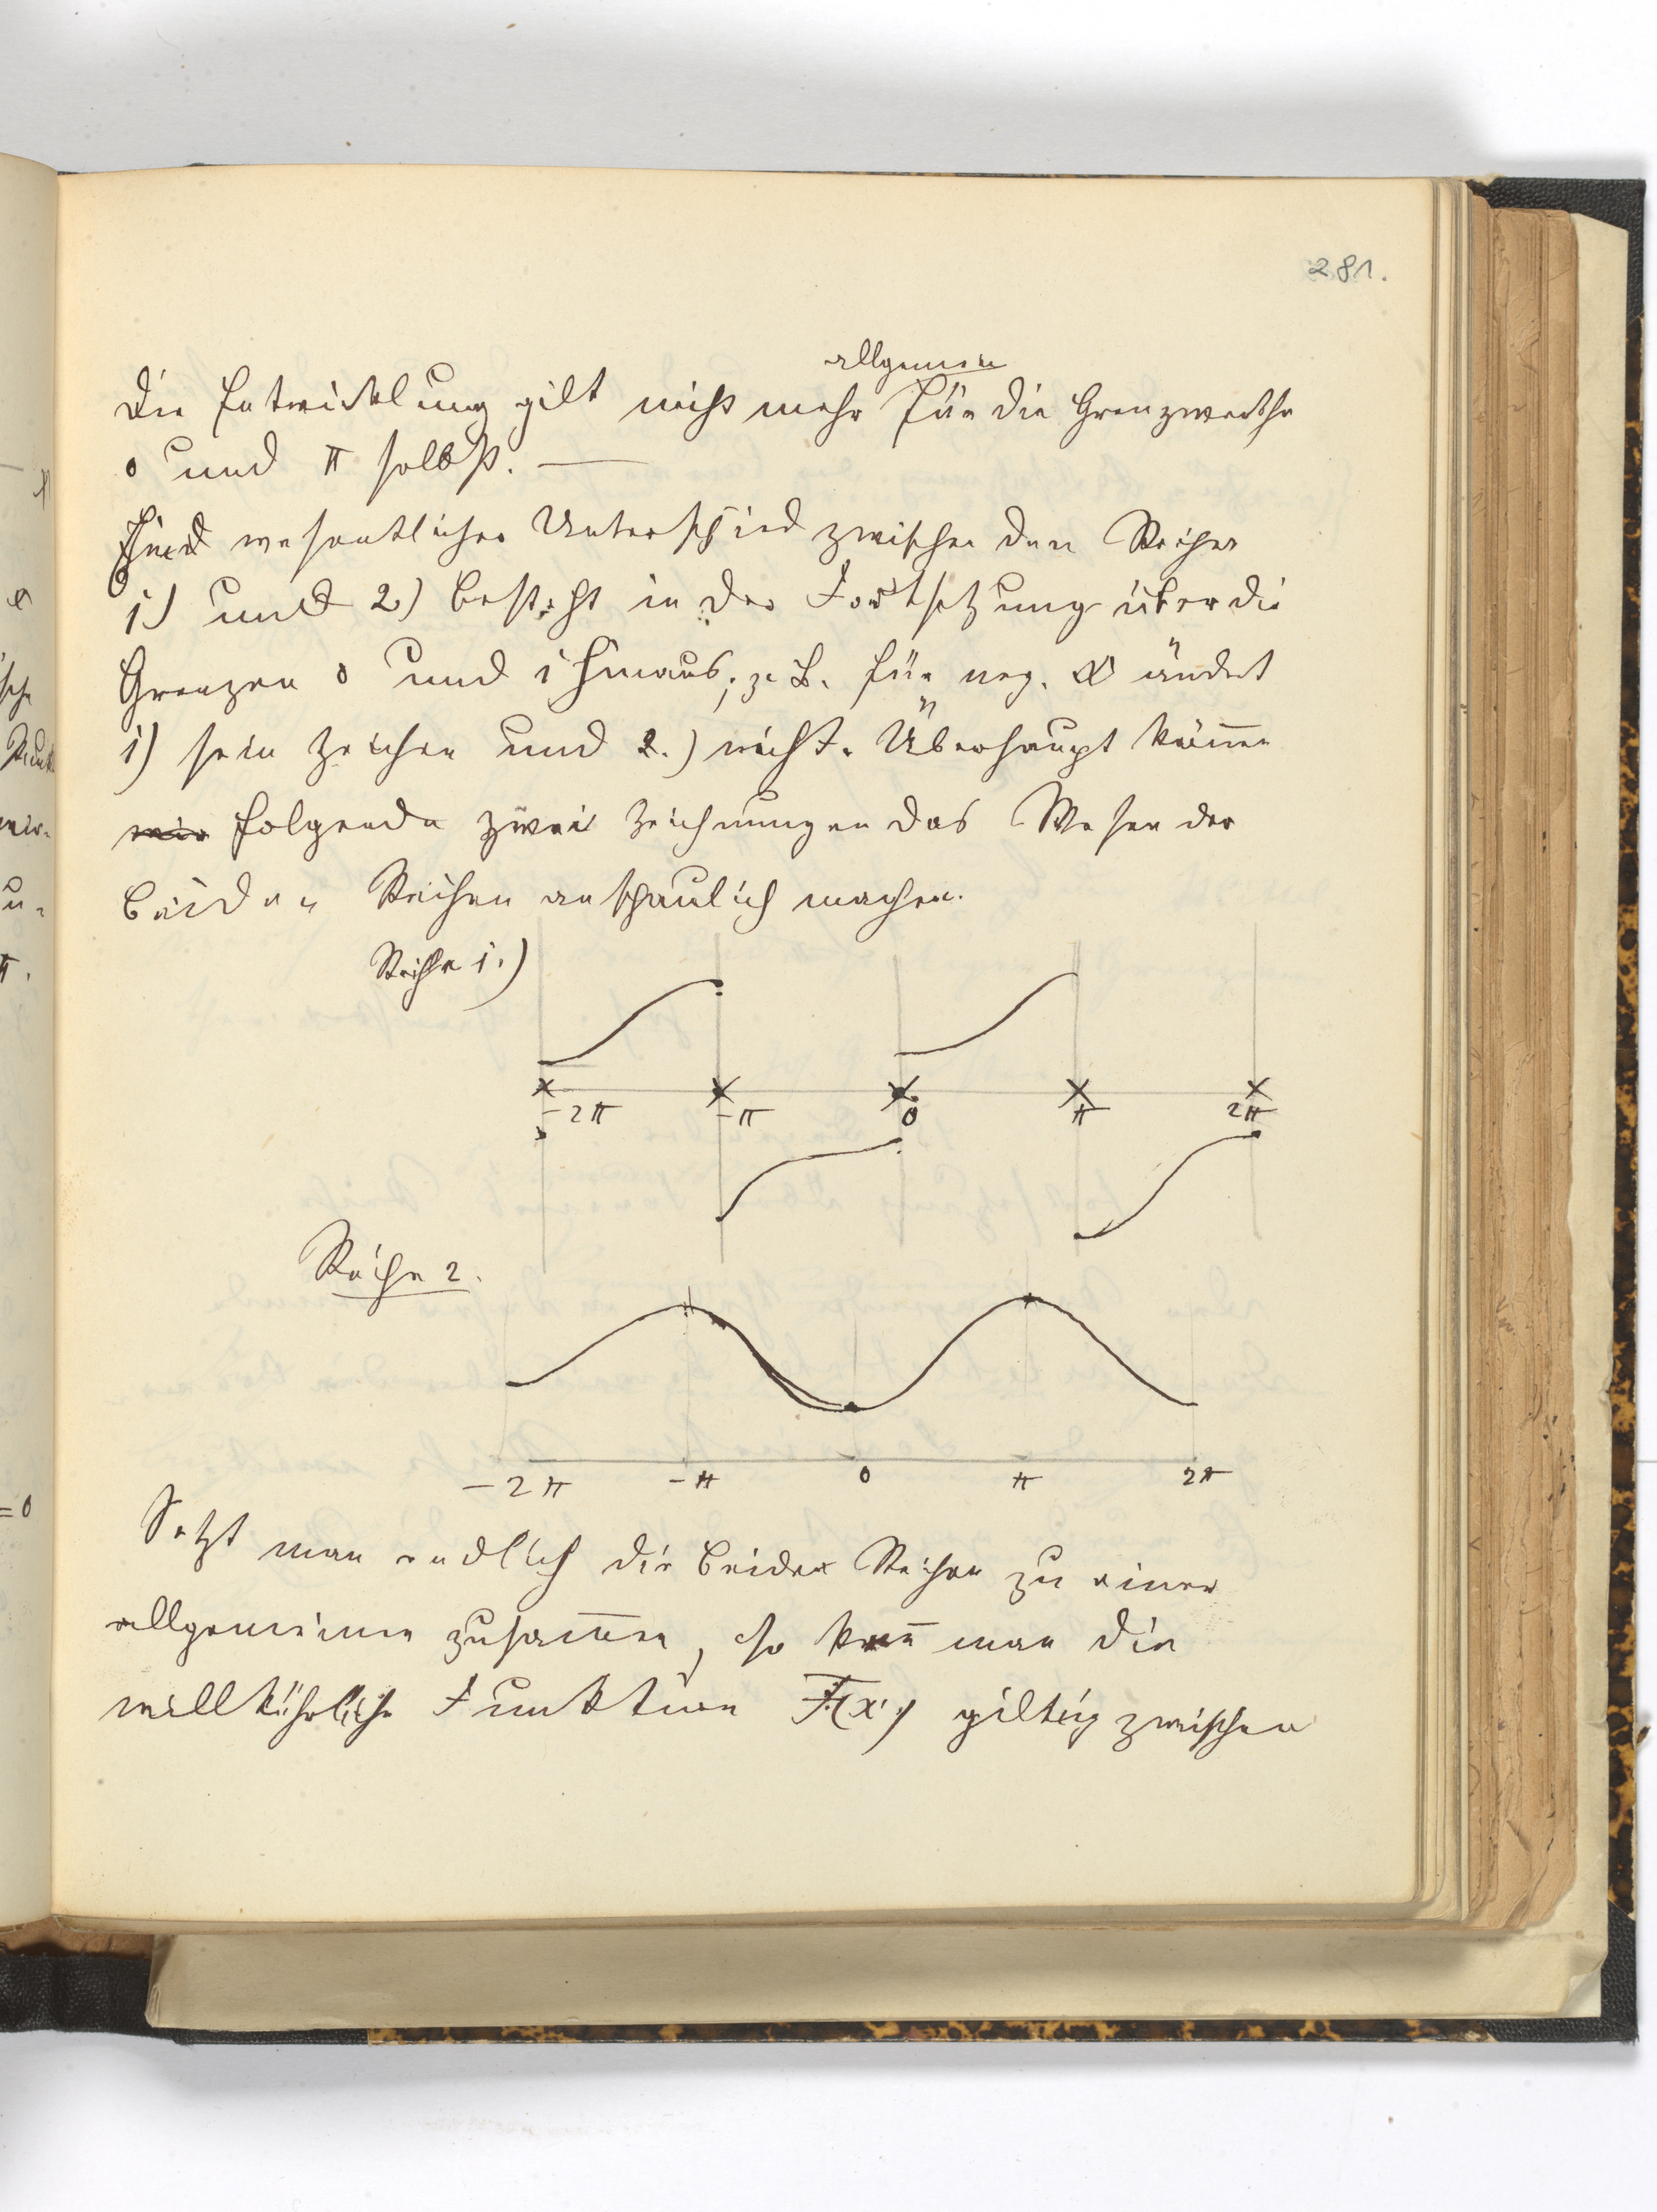 281.
allgemein
Die Entwicklung gilt nicht mehr für die Grenzwerthe
0 und π selbst. —
Ein wesentlicher Unterschied zwischen den Reihen
1) und 2) besteht in der Fortsetzung über die
Grenzen 0 und 1 hinaus; z. B. für neg. x ändert
1) sein Zeichen und 2.) nicht. Überhaupt kön̄en
wir folgende zwei Zeichnungen das Wesen der
beiden Reihen anschaulich machen.
Reihe 1.)
-2π -π 0 π 2π
Reihe 2.
-2π -π 0 π 2π
Setzt man endlich die beiden Reihen zu einer
allgemeinen zusam̄en, so kan̄ man die
willkührliche Funktion F(x) giltig zwischen
=0